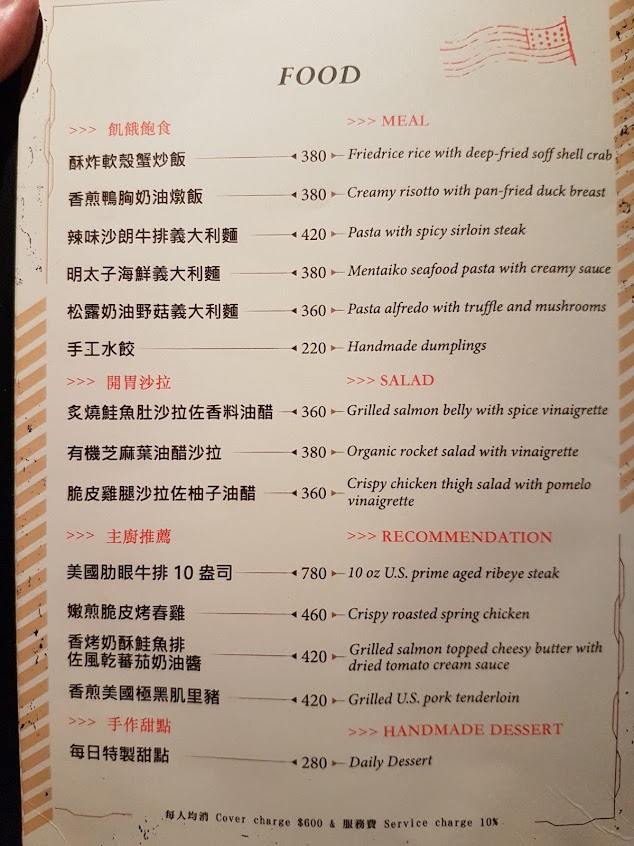 FOOD
>>> 飢餓飽食 >>> MEAL
酥炸軟殼蟹炒飯 380 Friedrice rice with deep-fried soff shell crab
香煎鴨胸奶油燉飯 380 Creamy risotto with pan-fried duck breast
辣味沙朗牛排義大利麵 420 Pasta with spicy sirloin steak
明太子海鮮義大利麵 380 Mentaiko seafood pasta with creamy sauce
松露奶油野菇義大利麵 360 Pasta alfredo with truffle and mushrooms
手工水餃 220 Handmade dumplings
>>> 開胃沙拉 >>> SALAD
炙燒鮭魚肚沙拉佐香料油醋 360 Grilled salmon belly with spice vinaigrette
有機芝麻葉油醋沙拉 380 Organic rocket salad with vinaigrette
脆皮雞腿沙拉佐柚子油醋 360 Crispy chicken thigh salad with pomelo
vinaigrette
>>> 主廚推薦 >>> RECOMMENDATION
美國肋眼牛排 10 盎司 780 10 oz U.S. prime aged ribeye steak
嫩煎脆皮烤春雞 460 Crispy roasted spring chicken
香烤奶酥鮭魚排
佐風乾蕃茄奶油醬 420 Grilled salmon topped cheesy butter with
dried tomato cream sauce
香煎美國極黑肌里豬 420 Grilled U.S. pork tenderloin
>>> 手作甜點 >>> HANDMADE DESSERT
每日特製甜點 280 Daily Dessert
每人均消 Cover charge $600 & 服務費 Service charge 10%